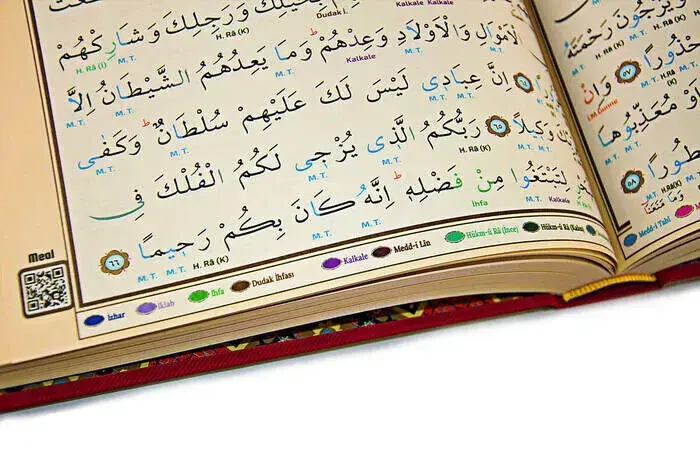 بِخَيْلِكَ وَرَجِلِكَ وَشَارِكْهُمْ
Dudak İ. H. Râ (K) H. Râ (İ) M. T.
الْاَمْوَالِ وَالْاَوْلَادِ وَعِدْهُمْ وَمَا يَعِدُهُمُ الشَّيْطَانُ اِلَّا
M. T. M. T. Kalkale M. T. M. T. M. T.
٦٤ اِنَّ عِبَادٖى لَيْسَ لَكَ عَلَيْهِمْ سُلْطَانٌ وَكَفٰى
M. T. M. T. M. T. M. T.
وَكٖيلًا ٦٥ رَبُّكُمُ الَّذٖى يُزْجٖى لَكُمُ الْفُلْكَ فِى
M. T. H. Râ (K) M. T. M. T.
لِتَبْتَغُوا مِنْ فَضْلِهٖ اِنَّهُ كَانَ بِكُمْ رَحٖيمًا ٦٦
M. T. İhfa M. T. M. T. H. Râ (K) M. T. M. T.
Meal
İzhar İklab İhfa Dudak İhfası Kalkale Medd-i Lin Hükm-ü Râ (İnce) Hükm-ü Râ (Kalın)
وَيَرْجُونَ رَحْمَتَهُ
H. Râ (K) M. T.
٥٧ وَاِنْ
اَوْ مُعَذِّبُوهَا
M. T. M. T.
٥٨
وَمَا مَنَعَنَا
Medd-i Tabî